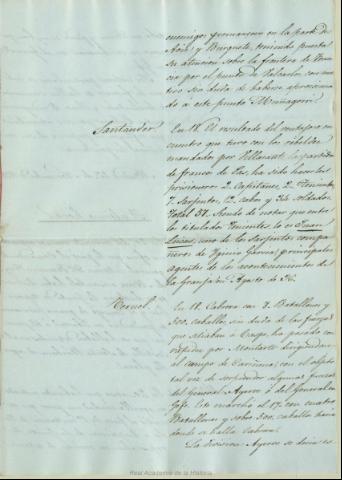 enemigos, y permanecen en la parte de
Aoiz y Burguete, teniendo puesta
su atencion sobre la frontera de Fran
cia por el punto de Valcarlos, con mo
tivo sin duda de haberse aproximado
do a este punto Muñagorri.
Santander. En 18. El resultado del ventajoso en
cuentro que tuvo con los rebeldes
mandados por Villanueva, la partida
de francos de Pas, ha sido hacerles
prisioneros 2. Capitanes, 2. Tenientes,
7. Sargentos, 12. cabos y 34. soldados.
Total 57. Siendo de notar que entre
los titulados Tenientes lo es Juan
Lucas, uno de los Sargentos compa
ñeros de Higinio Garcia, principales
agentes de los acontecimientos de
la Granja en Agosto de 36.
Teruel. En 18. Cabrera con 7. Batallones y
500. caballos, sin duda de las fuerzas
que sitiaban a Caspe, ha pasado con
rapidez por Montalvan dirigiendose
al campo de Cariñena, con el objeto
tal vez de sorprender algunas fuerzas
del General Ayerve, y del General en
Gefe. Este marchó el 17. con cuatro
Batallones y sobre 500. caballos hacia
donde se halla Cabrera.
La division Ayerve se dirige
Real Academia de la Historia